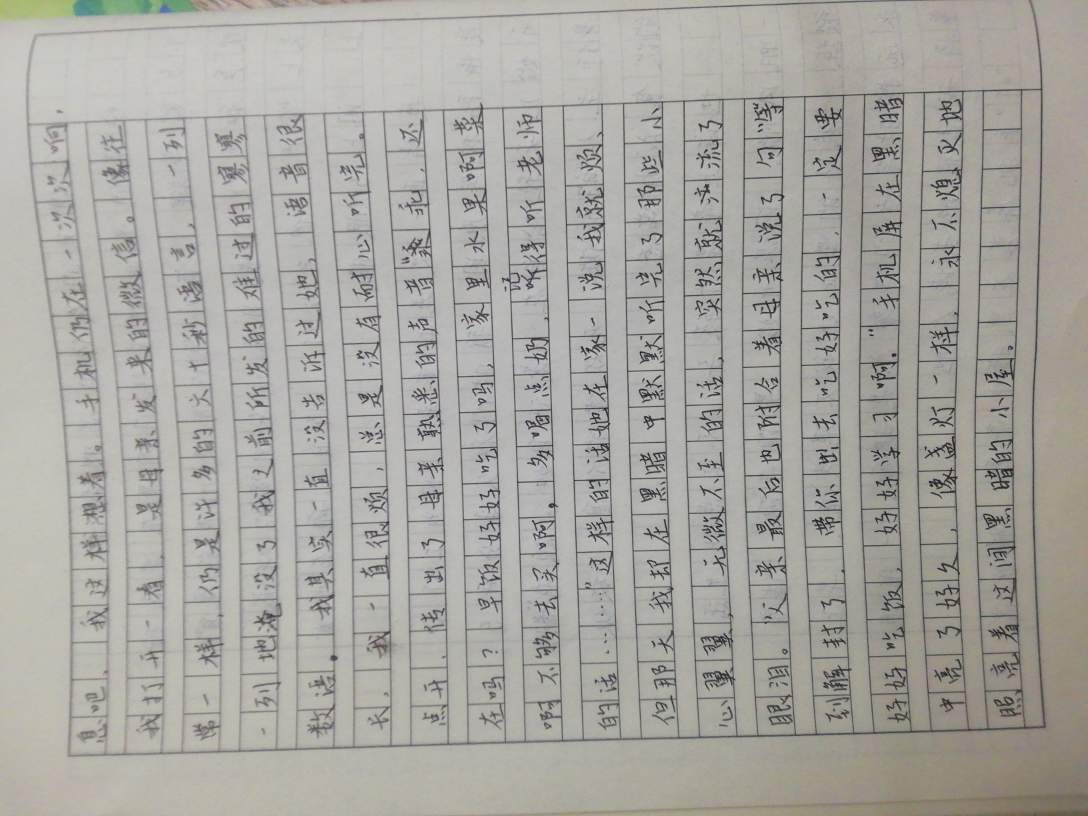 息吧，我这样想着。手机仍在一次次响，
我打开一看，是母亲发来的微信。像往
常一样，仍是许多的六十秒语言，一列
一列地淹没了我之前所发的难过的寥寥
数语。我其实一直没告诉过她，语音很
长，我一直很烦，总是没有耐心听完。
点开，传出了母亲熟悉的声音“乖，还
在吗？早饭好好吃了吗，家里水果啊菜
啊不够去买啊，多喝点奶，记得听老师
的话……”这样的话她在家一说我就烦、
但那天我却在黑暗中默默听完了那些小
心翼翼，无微不至的话，突然就流了
眼泪。父亲最后也附合着母亲说了句“等
到解封了，带你出去吃好吃的，一定要
好好吃饭，好好学习啊。”手机屏在黑暗
中亮了好久，像盏灯一样，永不熄灭地
照亮着这间黑暗的小屋。